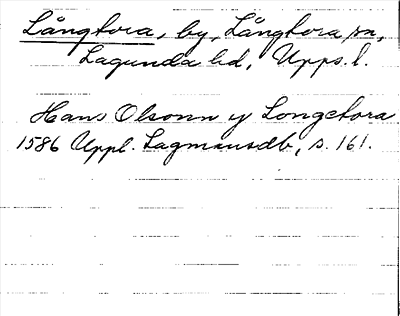 Långtora, by, Långtora sn,
Lagunda hd, Upps. l.
Hans Olsonn y Longetora
1586 Uppl. Lagmansdb, s. 161.